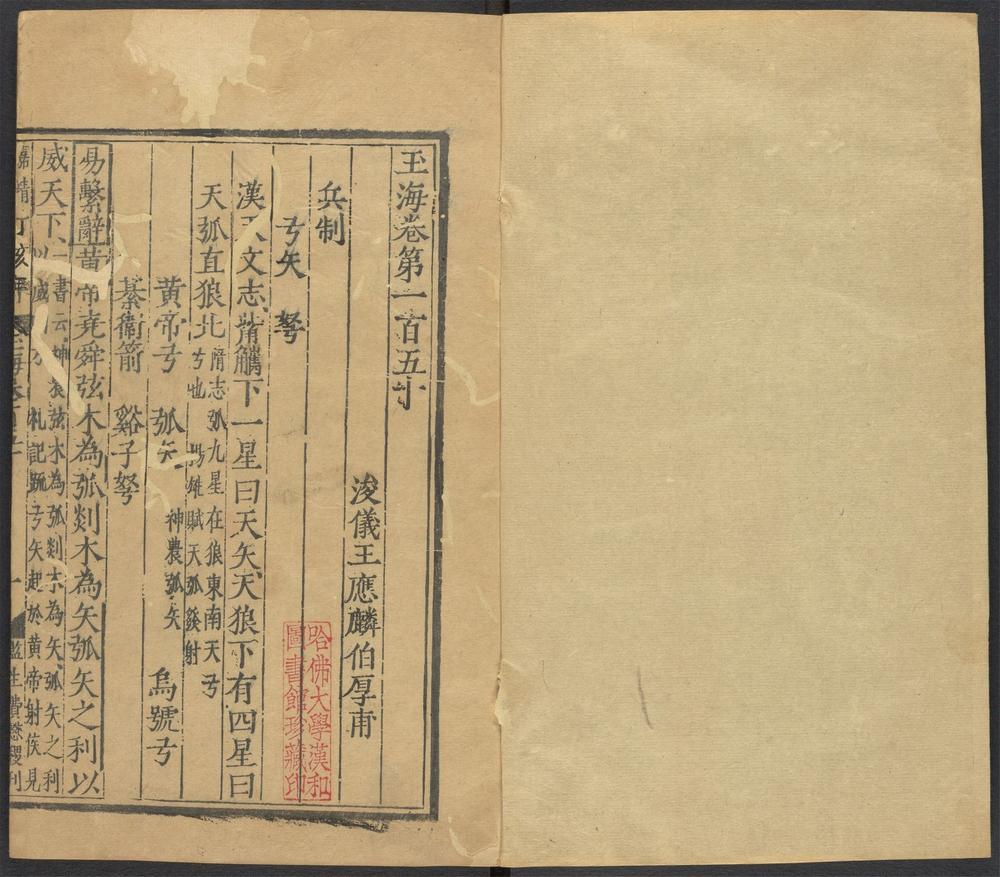 玉海卷第一百五十
浚儀王應麟伯厚甫
兵制
弓矢 弩
漢天文志觜觿下一星曰天矢天狼下有四星曰
天弧直狼北隋志弧九星在狼東南天
弓也 揚雄賦天弧發射
黃帝弓 弧矢 神農弧矢 烏號弓
綦衛箭 谿子弩
易繫辭黃帝堯舜弦木為弧剡木為矢弧矢之利以
威天下一書云神農弦木為弧剡木為矢弧矢之利
以威 禮記疏弓矢起於黃帝射侯見
嘉靖丁亥 玉海卷 一 監生費懋稷刊
哈佛大學漢和
圖書館珍藏印